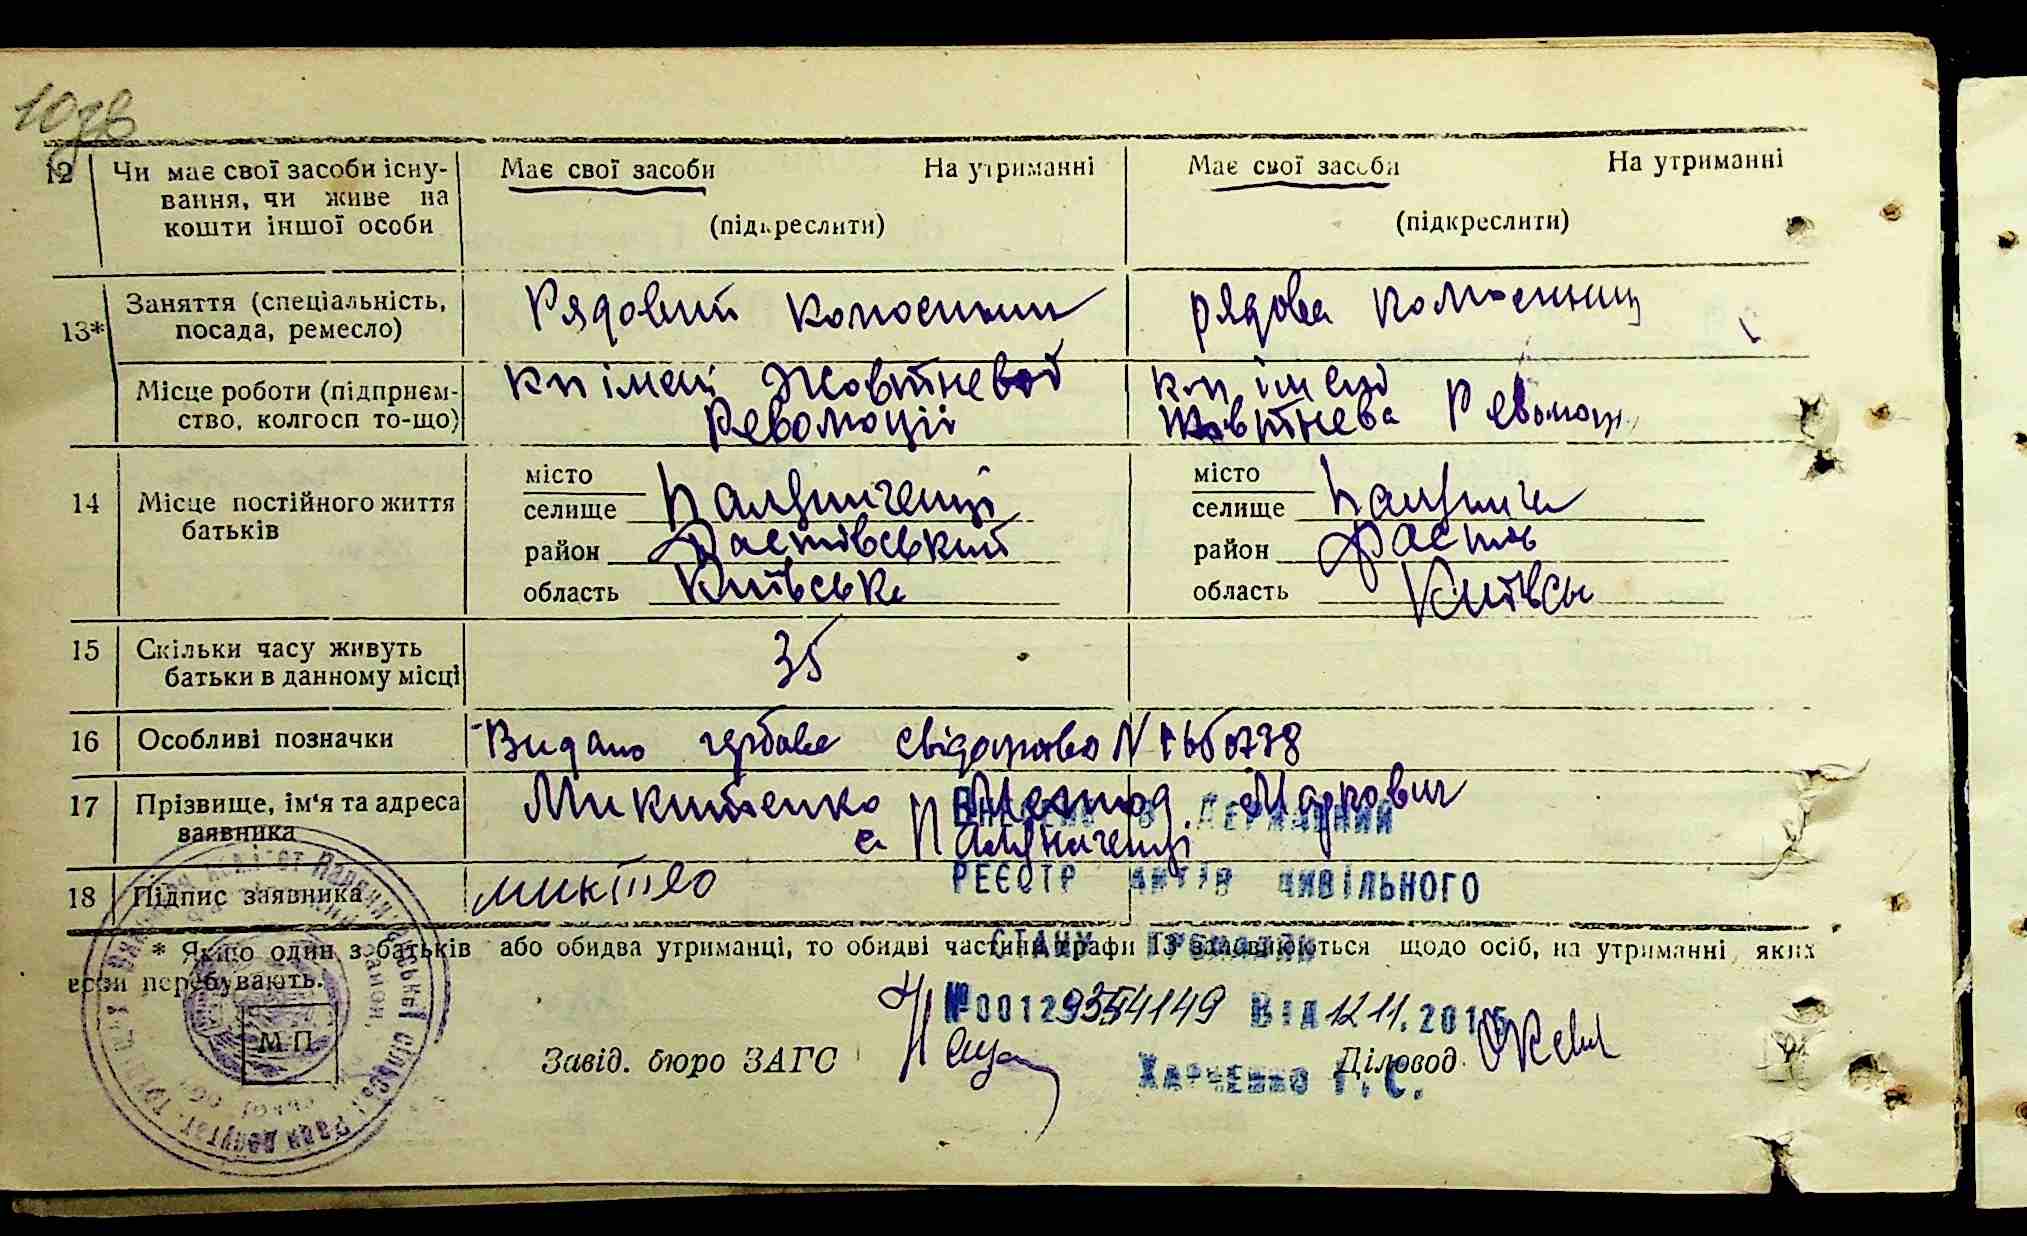 10зв
12 Чи має свої засоби існу- Має свої засоби На утриманні Має свої засоби На утриманні
вання, чи живе на
кошти іншої особи (підкреслити) (підкреслити)
13* Заняття (спеціальність, Рядовий колгоспник рядова колгоспниц
посада, ремесло)
Місце роботи (підприєм- кп імені Жовтневої кп імені
ство, колгосп то-що) Революції Жовтнева Революц
14 Місце постійного життя місто місто
батьків селище Паляниченці селище Паляниче
район Фастівський район Фастів
область Київська область Київсь
15 Скільки часу живуть 35
батьки в данному місці
16 Особливі позначки Видано гербове свідоцтво N
17 Прізвище, ім'я та адреса Микитенко Маркович
заявника с. Паляниченці
ВНЕСЕНО В ДЕРЖАВНИЙ
18 Підпис заявника
РЕЄСТР АКТІВ ЦИВІЛЬНОГО
* Якщо один з батьків або обидва утриманці, то обидві частини графи 13 заповнюються щодо осіб, на утриманні яких
вони перебувають.
СТАНУ ГРОМАДЯН
№00129354149 ВІД 12 11. 2015
М П
Завід. бюро ЗАГС Діловод
ХАРЧЕНКО Г. С.